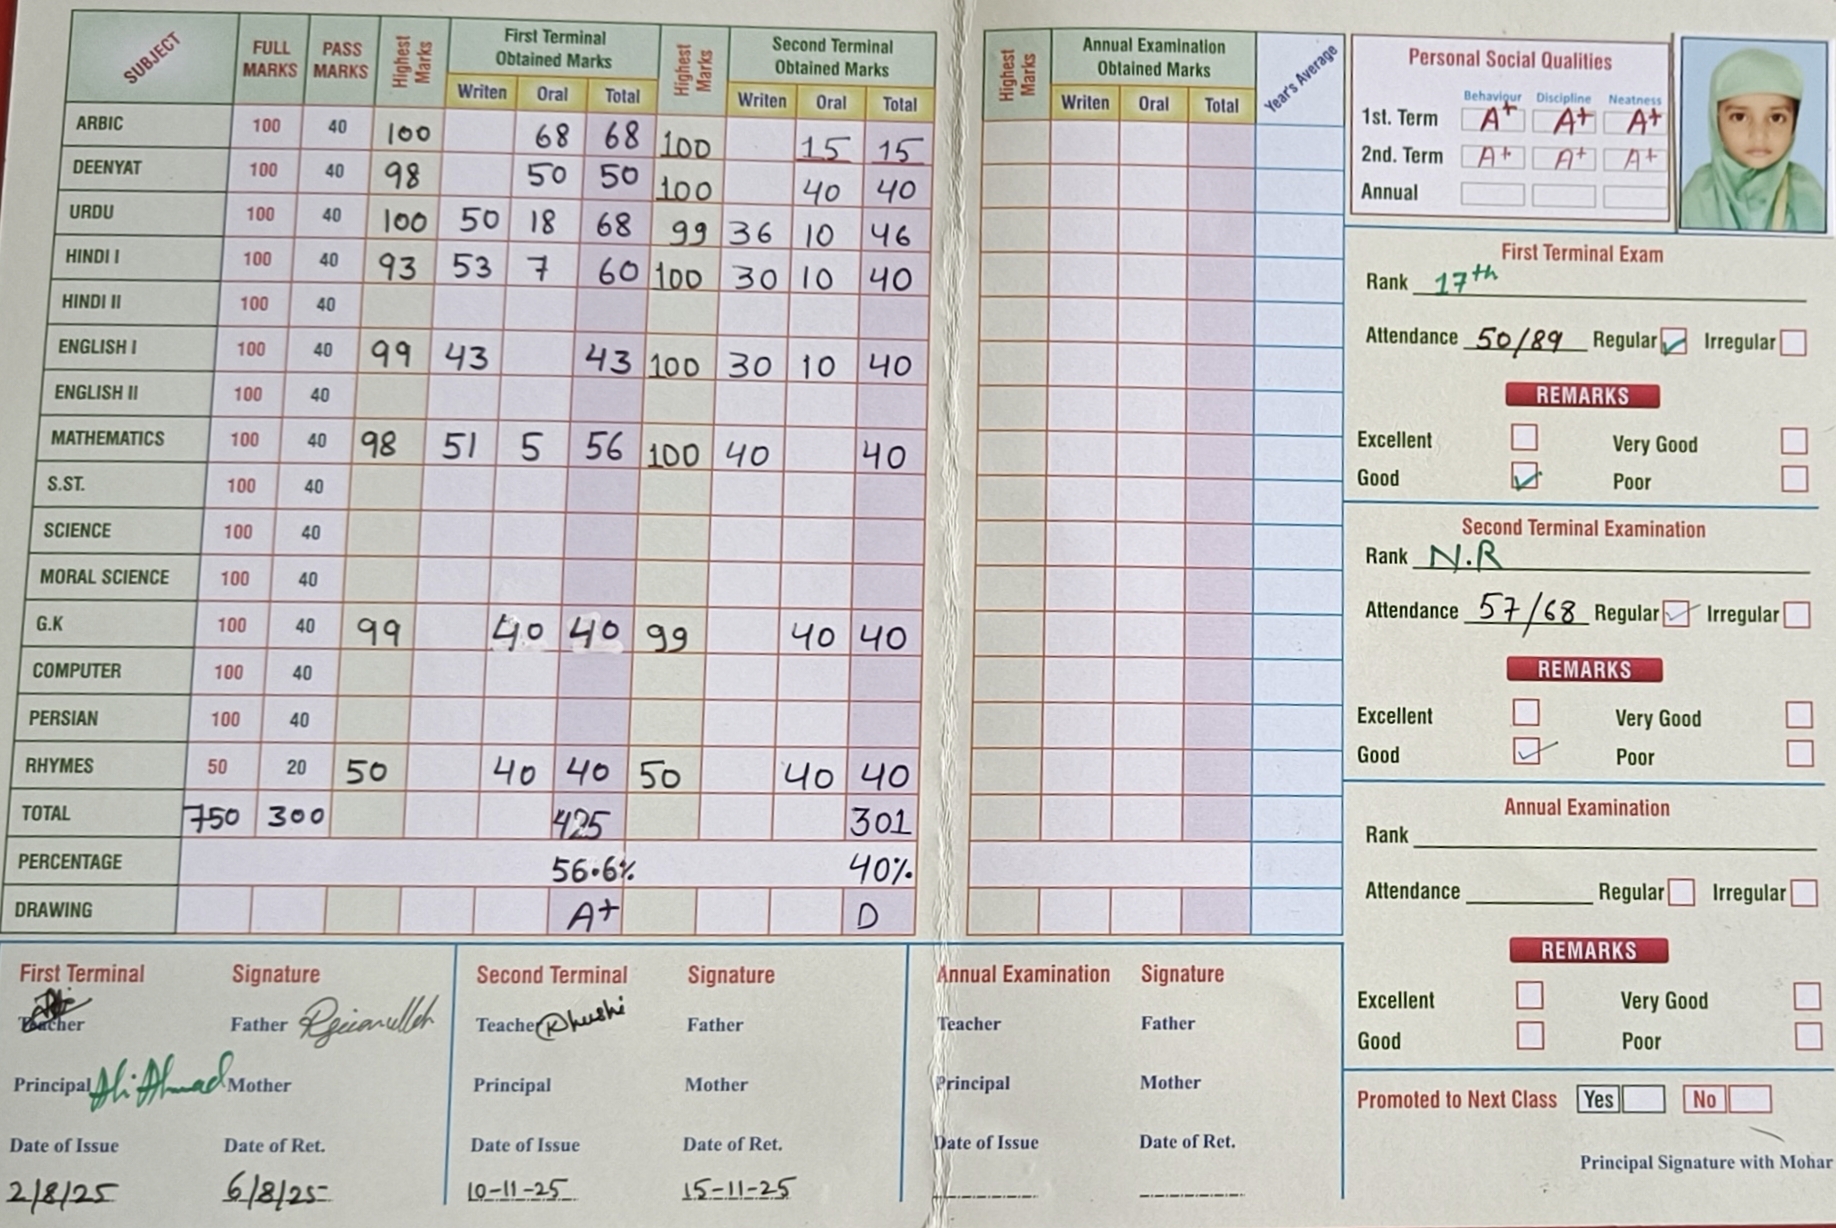 SUBJECT FULL MARKS PASS MARKS Highest Marks First Terminal Obtained Marks Highest Marks Second Terminal Obtained Marks Highest Marks Annual Examination Obtained Marks Year's Average
Writen Oral Total Writen Oral Total Writen Oral Total
ARBIC 100 40 100 68 68 100 15 15
DEENYAT 100 40 98 50 50 100 40 40
URDU 100 40 100 50 18 68 99 36 10 46
HINDI I 100 40 93 53 7 60 100 30 10 40
HINDI II 100 40
ENGLISH I 100 40 99 43 43 100 30 10 40
ENGLISH II 100 40
MATHEMATICS 100 40 98 51 5 56 100 40 40
S.ST. 100 40
SCIENCE 100 40
MORAL SCIENCE 100 40
G.K 100 40 99 40 40 99 40 40
COMPUTER 100 40
PERSIAN 100 40
RHYMES 50 20 50 40 40 50 40 40
TOTAL 750 300 425 301
PERCENTAGE 56.6% 40%
DRAWING A+ D
First Terminal Signature
Teacher Father
Principal Ali Ahmad Mother
Date of Issue Date of Ret.
2/8/25 6/8/25
Second Terminal Signature
Teacher Khushi Father
Principal Mother
Date of Issue Date of Ret.
10-11-25 15-11-25
Annual Examination Signature
Teacher Father
Principal Mother
Date of Issue Date of Ret.
Personal Social Qualities
Behaviour Discipline Neatness
1st. Term A+ A+ A+
2nd. Term A+ A+ A+
Annual
First Terminal Exam
Rank 17th
Attendance 50/89 Regular Irregular
REMARKS
Excellent Very Good
Good Poor
Second Terminal Examination
Rank N.R
Attendance 57/68 Regular Irregular
REMARKS
Excellent Very Good
Good Poor
Annual Examination
Rank
Attendance Regular Irregular
REMARKS
Excellent Very Good
Good Poor
Promoted to Next Class Yes No
Principal Signature with Mohar